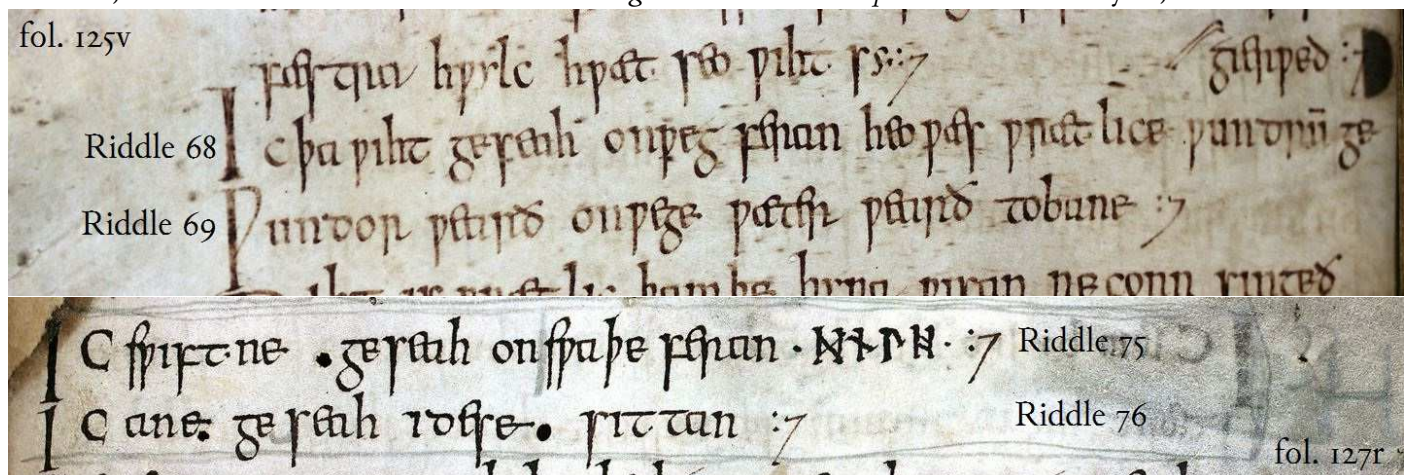 fol. 125v
fæstra hwylc hwæt seo wiht sy :7 gierwed :7
Riddle 68 Ic þa wiht geseah onweg feran heo wæs wrætlice wundrū ge
Riddle 69 Wundor wearð onwege wæter wearð tobane :7
wiht is wrætlic þam þe hyra wisan ne conn singeð
IC swiftne ·geseah onswaþe feran · ᛞᚾᛚᚻ · :7 Riddle 75
IC ane geseah idese· sittan :7 Riddle 76
fol. 127r